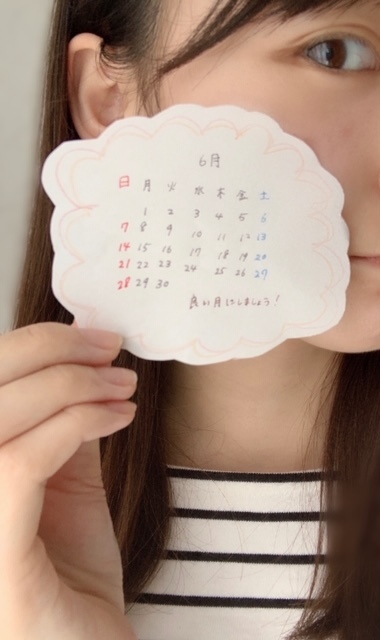 6月
日 月 火 水 木 金 土
1 2 3 4 5 6
7 8 9 10 11 12 13
14 15 16 17 18 19 20
21 22 23 24 25 26 27
28 29 30
良い月にしましょう！